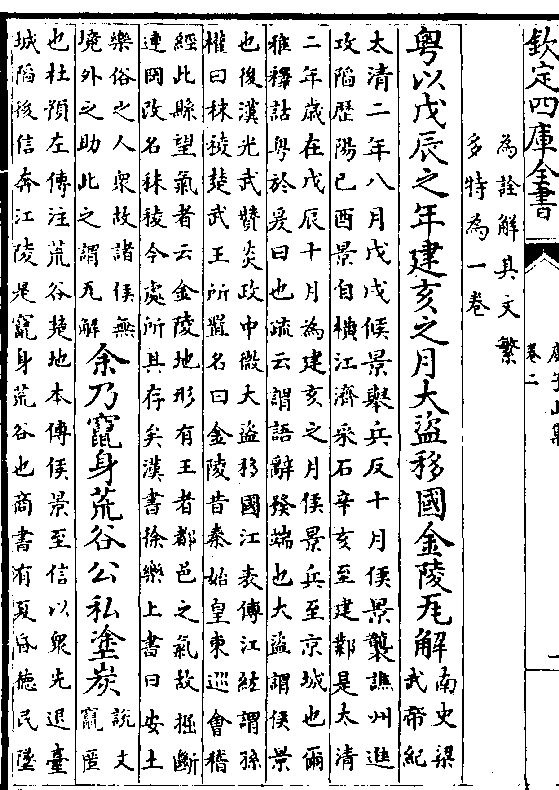 欽定四庫全書
卷二
為詮解其文繁
多特為一卷
粤以戊辰之年建亥之月大盜移國金陵瓦解南史梁
武帝紀
太清二年八月戊戌侯景舉兵反十月侯景襲譙州進
攻陷歷陽己酉景自横江濟采石辛亥至建鄴是太清
二年歳在戊辰十月為建亥之月侯景兵至京城也爾
雅釋詁粤於爰曰也疏云謂語辭發端也大盜謂侯景
也後漢光武贊炎政中微大盜移國江表傳江紘謂孫
權曰秣稜楚武王所置名曰金陵昔秦始皇東巡會稽
經此縣望氣者云金陵地形有王者都邑之氣故掘斷
連岡改名秣稜今處所具存矣漢書徐樂上書曰安土
樂俗之人衆故諸侯無
境外之助此之謂瓦解
余乃竄身荒谷公私塗炭說文
竄匿
也杜預左傳注荒谷楚地本傳侯景至信以衆先退臺
城陷後信奔江陵是竄身荒谷也商書有夏昏徳民墜